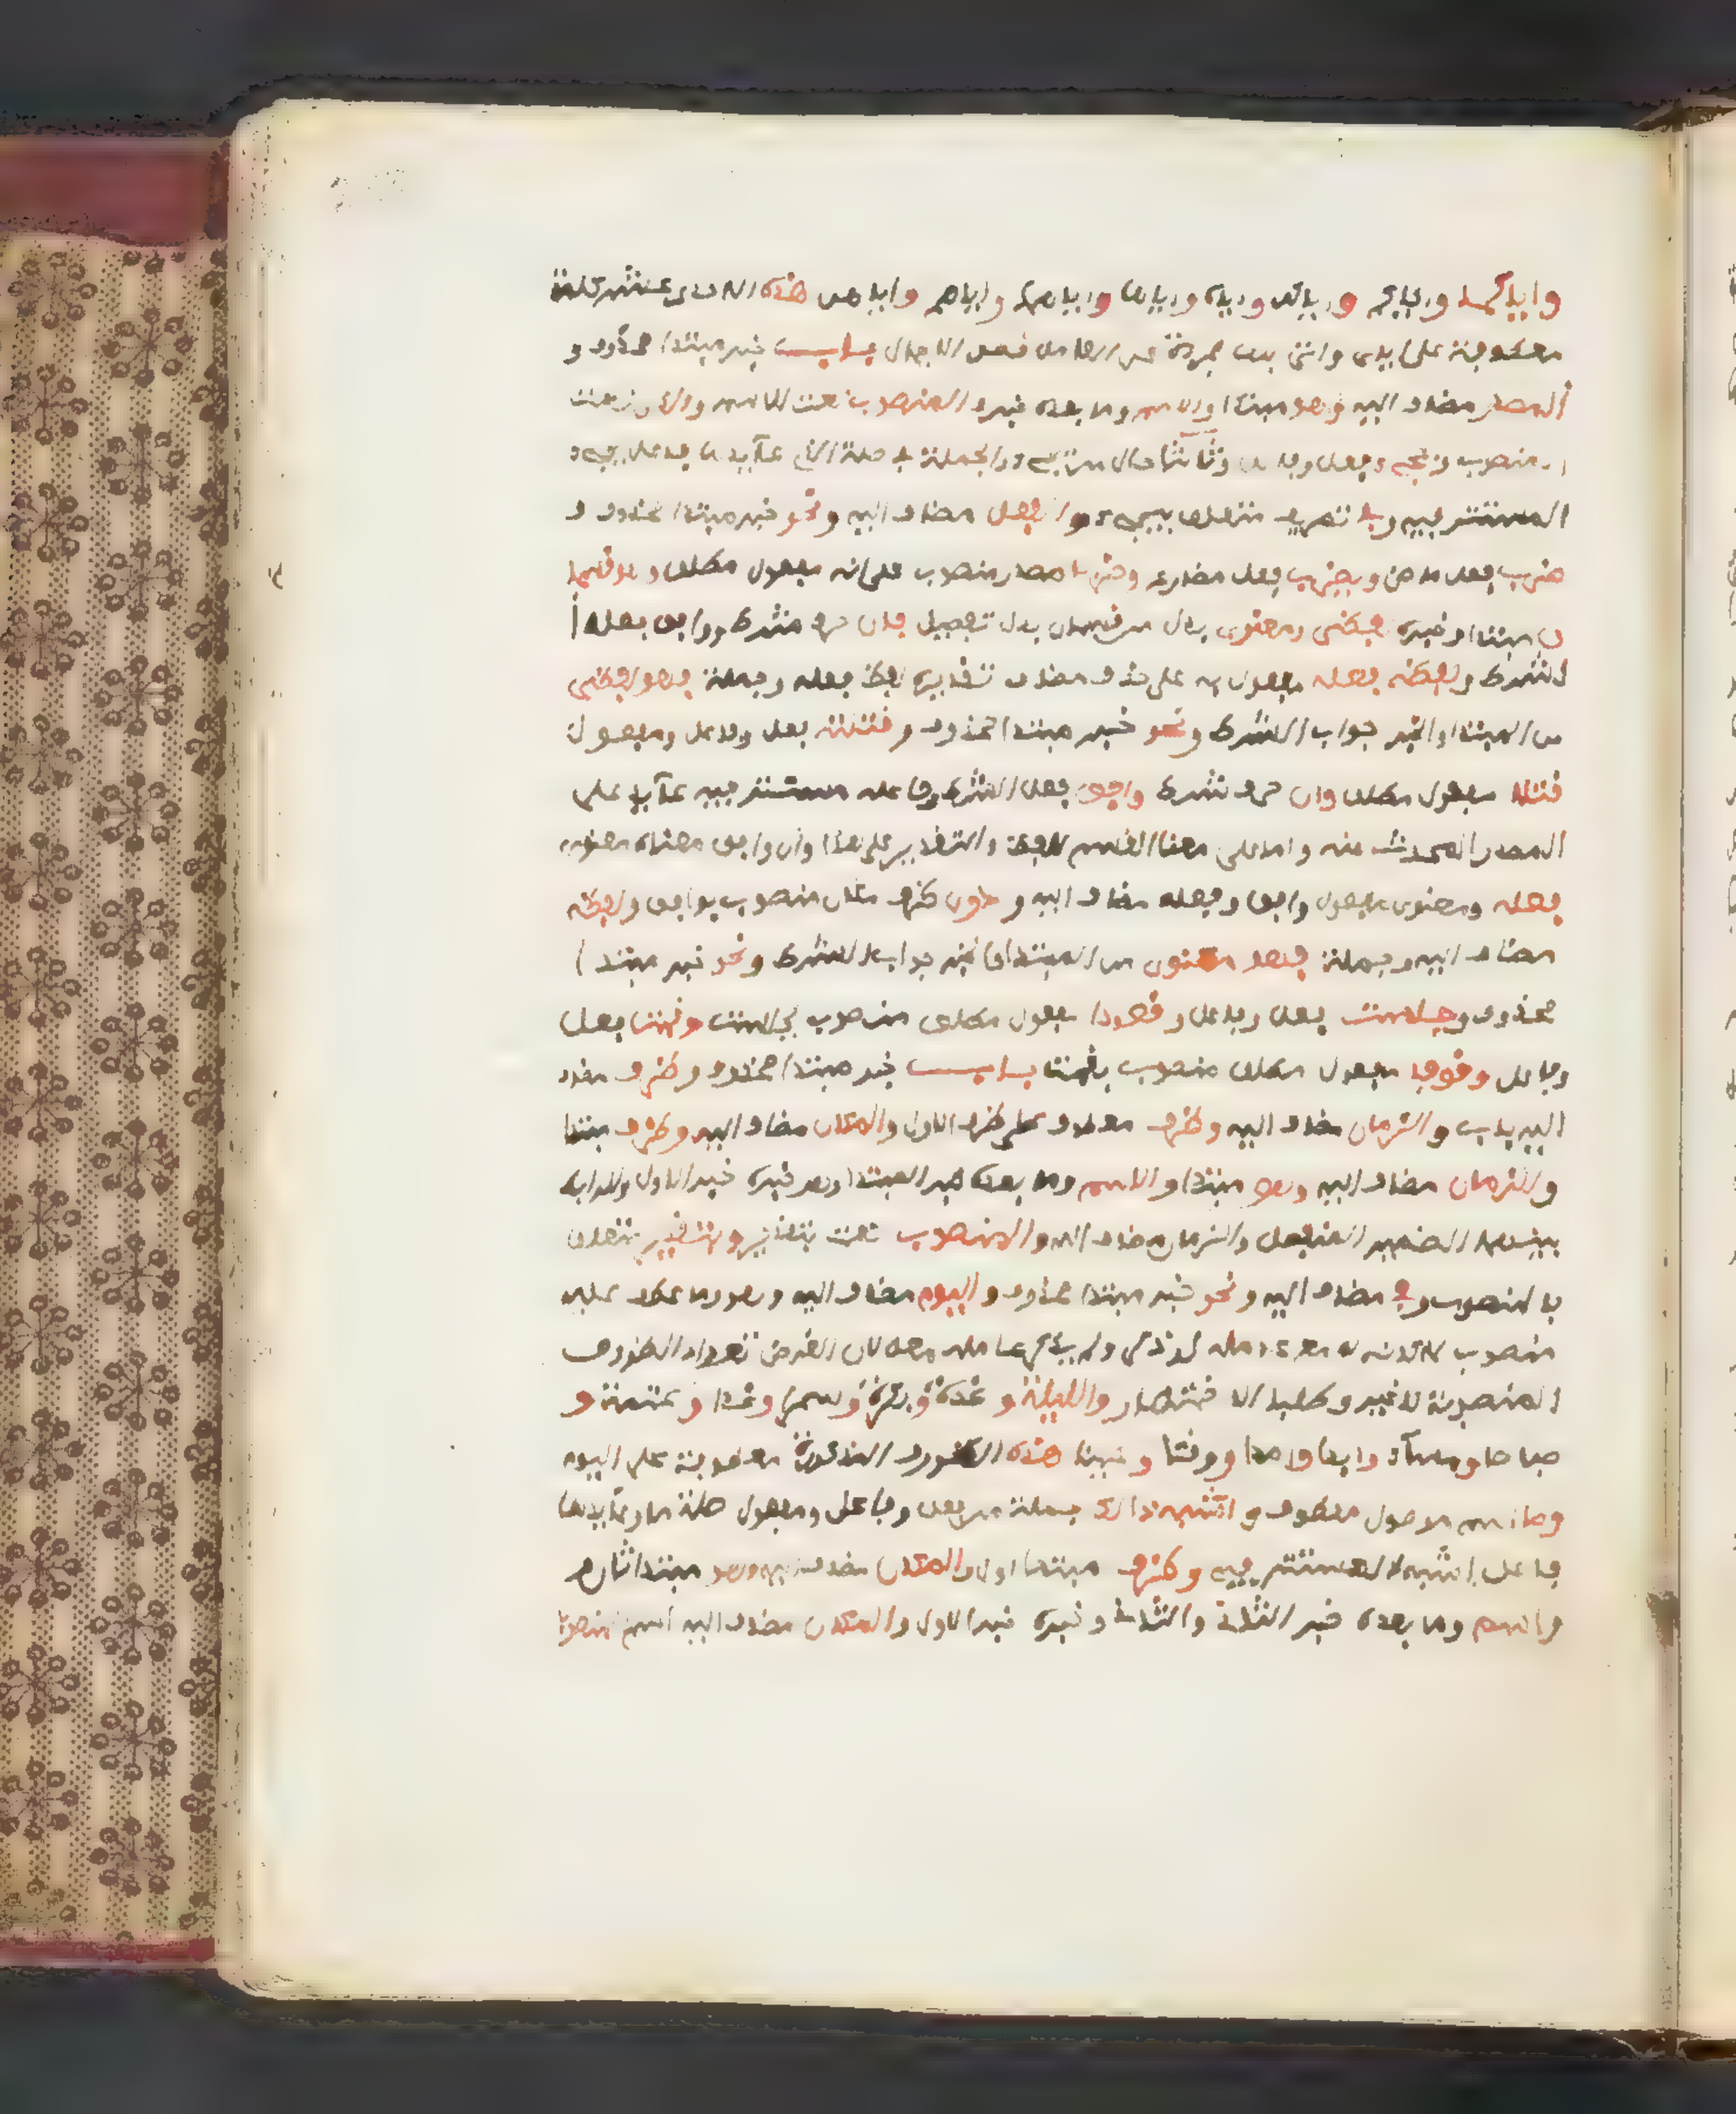 واياكما واياكم واياكن واياه واياها واياهما واياهم واياهن هذه الاحدى عشر كلمة
معطوفة على اياي وانتى بها مجردة من العامل قصد الاجمال باب خبر مبتدا محذوف و
المصدر مضاف اليه وهو مبتدا والاسم وما بعده خبره المنصوب نعت للاسم والذي نعت
المنصوب ويجيء فعل وفاعل وثالثا حال من يجيء والجملة صلة الذي عائدها فاعل يجيء
المستتر فيه وفي تصريف متعلق بيجيء والفعل مضاف اليه ونحو خبر مبتدا محذوف و
ضرب فعل ماض ويضرب فعل مضارع وضربا مصدر منصوب على انه مفعول مطلق وهو قسما
ن مبتدا وخبره لفظي ومعنوي بدل من قسمان بدل تفصيل فان حرف شرط ووافق فعل ا
لشرط ولفظه فعله مفعول به على حذف مضاف تقديره لفظ فعله وجملة فهو لفظي
من المبتدا والخبر جواب الشرط ونحو خبر مبتدا محذوف وقتلته فعل وفاعل ومفعول
قتلا مفعول مطلق وان حرف شرط وافق فعل الشرط وفاعله مستتر فيه عائد على
المصدر المحدث عنه والتقدير على هذا وان وافق معناه معنى
فعله ومعنى مفعول وافق وفعله مضاف اليه ودون ظرف مكان منصوب بوافق ولفظه
مضاف اليه وجملة فهو معنوي من المبتدا والخبر جواب الشرط ونحو خبر مبتدا
محذوف وجلست فعل وفاعل وقعودا مفعول مطلق منصوب بجلست وقمت فعل
وفاعل وقوفا مفعول مطلق منصوب بقمت باب خبر مبتدا محذوف وظرف مضاف
اليه باب والزمان مضاف اليه وظرف معطوف على ظرف الاول والمكان مضاف اليه وظرف مبتدا
والزمان مضاف اليه وهو مبتدا والاسم وما بعده خبر المبتدا وهو خبره خبر الاول والرابط
بينهما الضمير المنفصل والزمان مضاف اليه والمنصوب نعت بتقدير وبتقدير متعلق
بالمنصوب وفي مضاف اليه ونحو خبر مبتدا محذوف واليوم مضاف اليه وهو وما عطف عليه
منصوب ولم يذكر عامله معه لان الغرض تعداد الظروف
المنصوبة لا غير وطلبا للاختصار والليلة وغدوة وبكرة وسحرا وغدا وعتمة و
صباحا ومساء وابدا وامدا ووقتا وحينا هذه الظروف المذكورة معطوفة على اليوم
وما اسم موصول معطوف واشبه ذالك جملة من فعل وفاعل ومفعول صلة ما وعائدها
فاعل اشبه المستتر فيه وظرف مبتدا اول والمكان مضاف اليه وهو مبتدا ثان
واسم وما بعده خبر الثاني والثاني وخبره خبر الاول والمكان مضاف اليه اسم المنصوب